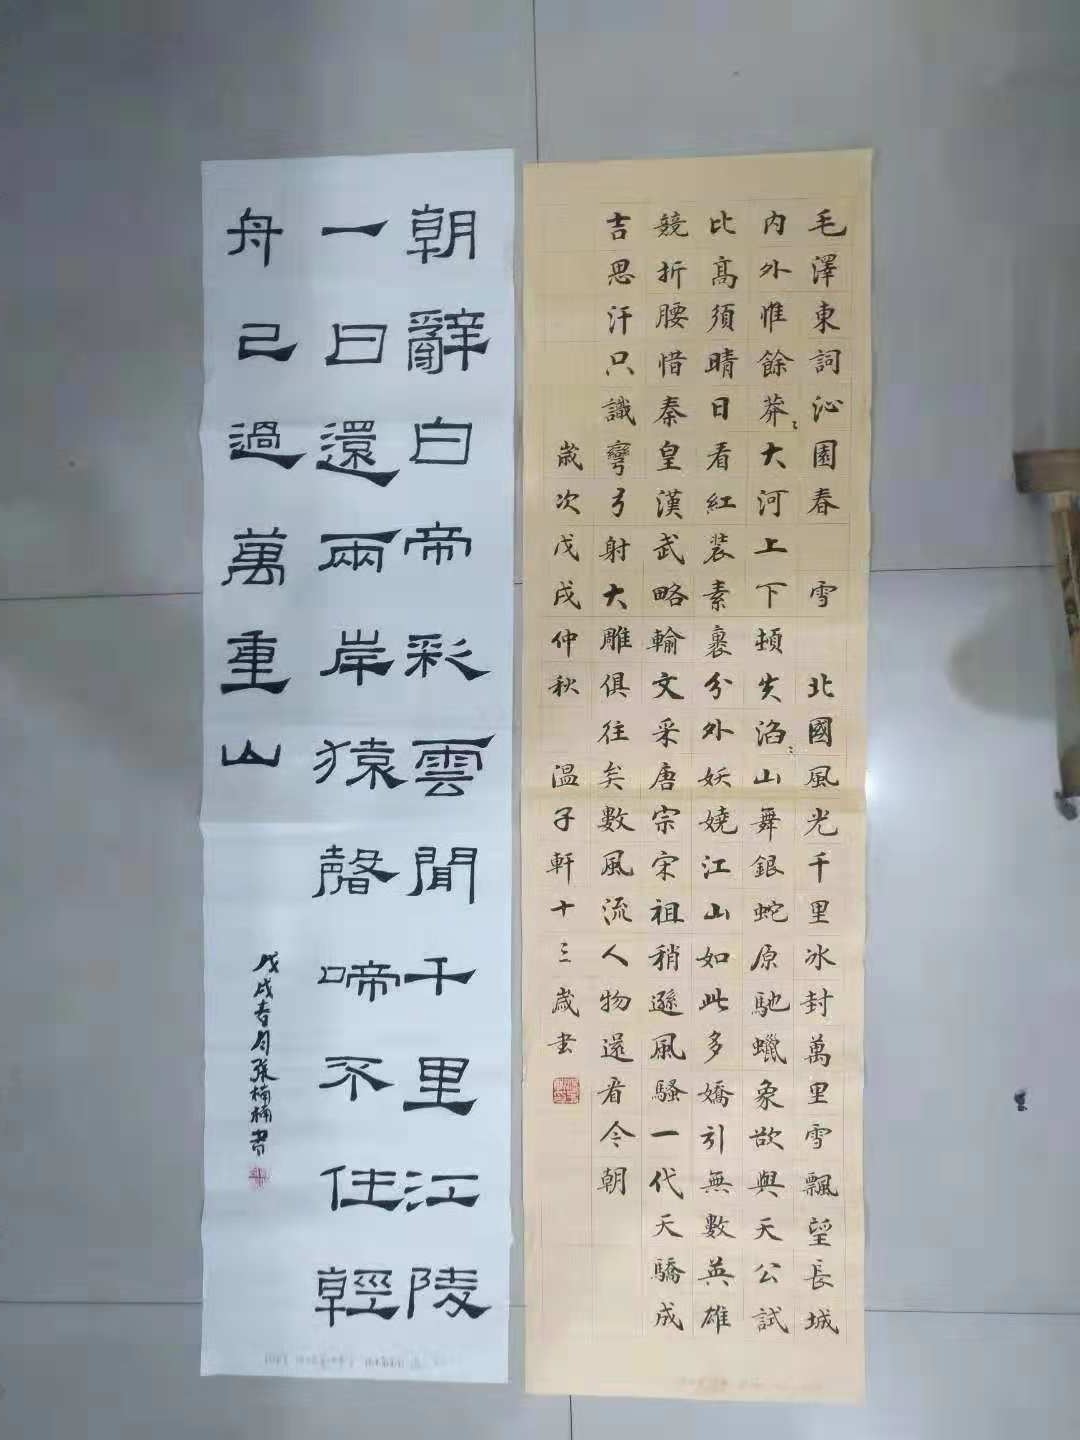 毛澤東詞沁園春 雪 北國風光千里冰封萬里雪飄望長城
内外惟餘莽〻大河上下頓失滔〻山舞銀蛇原馳蠟象欲與天公試
比高須晴日看紅装素裹分外妖嬈江山如此多嬌引無數英雄
競折腰惜秦皇漢武略輸文采唐宗宋祖稍遜風騷一代天驕成
吉思汗只識彎弓射大雕俱往矣數風流人物還看今朝
歲次戊戌仲秋 温子軒十三歲書
朝辭白帝彩雲間千里江陵
一日還兩岸猿聲啼不住輕
舟已過萬重山
戊戌春月張楠楠書